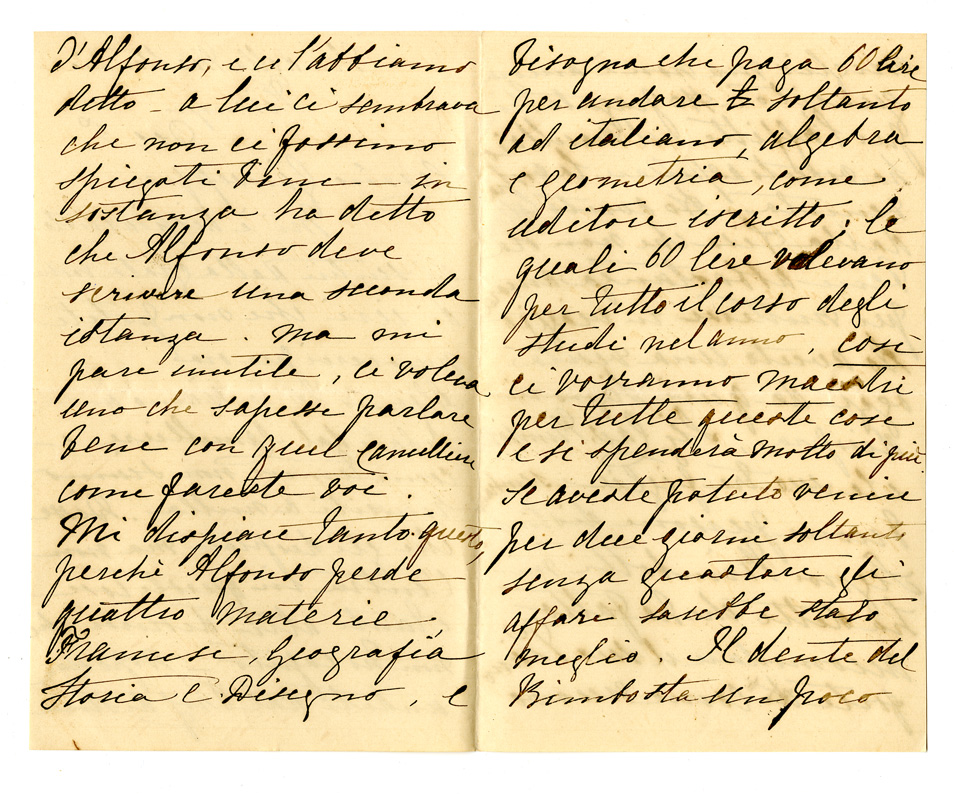 d'Alfonso, e ce l'abbiamo
detto - a lui ci sembrava
che non ci fossimo
spiegati bene - in
sostanza ha detto
che Alfonso deve
scrivere una seconda
istanza. ma mi
pare inutile, ci voleva
uno che sapesse parlare
bene con quel
come fareste voi.
Mi dispiace tanto questo,
perchè Alfonso perde
quattro materie
Francese, Geografia
Storia e Disegno, e
bisogna che paga 60 lire
per andare soltanto
ad italiano, algebra
e geometria, come
uditore iscritto; le
quali 60 lire valevano
per tutto il corso degli
studi nel anno, così
ci vorranno maestri
per tutte queste cose
e si spenderà molto di più.
se aveste potuto venire
per due giorni soltanto
senza guastare gli
affari sarebbe stato
meglio. Il dente del
Bimbo sta un poco